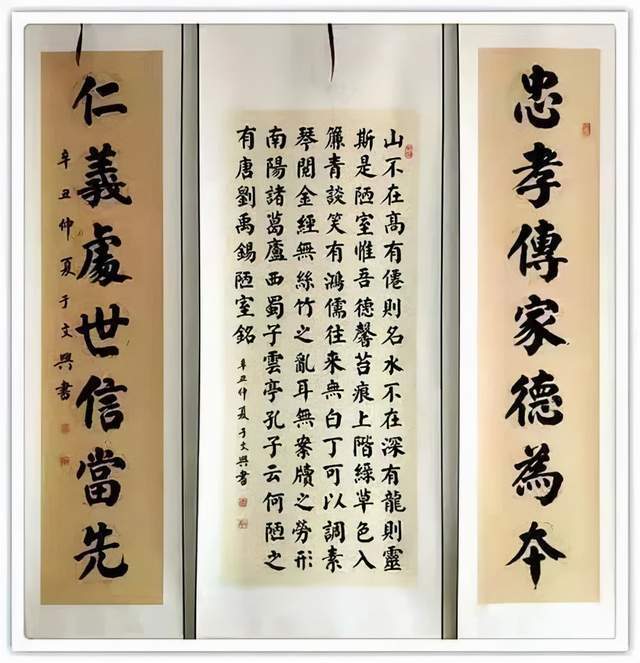 忠孝傳家德為夲
山不在髙有僊則名水不在深有龍則靈
斯是陋室惟吾德馨苔痕上階綠草色入
簾青談笑有鴻儒往来無白丁可以調素
琴閱金經無絲竹之亂耳無案牘之勞形
南陽諸葛廬西蜀子雲亭孔子云何陋之
有唐劉禹錫陋室銘 辛丑仲夏于文興書
仁義處世信當先
辛丑仲夏于文興書